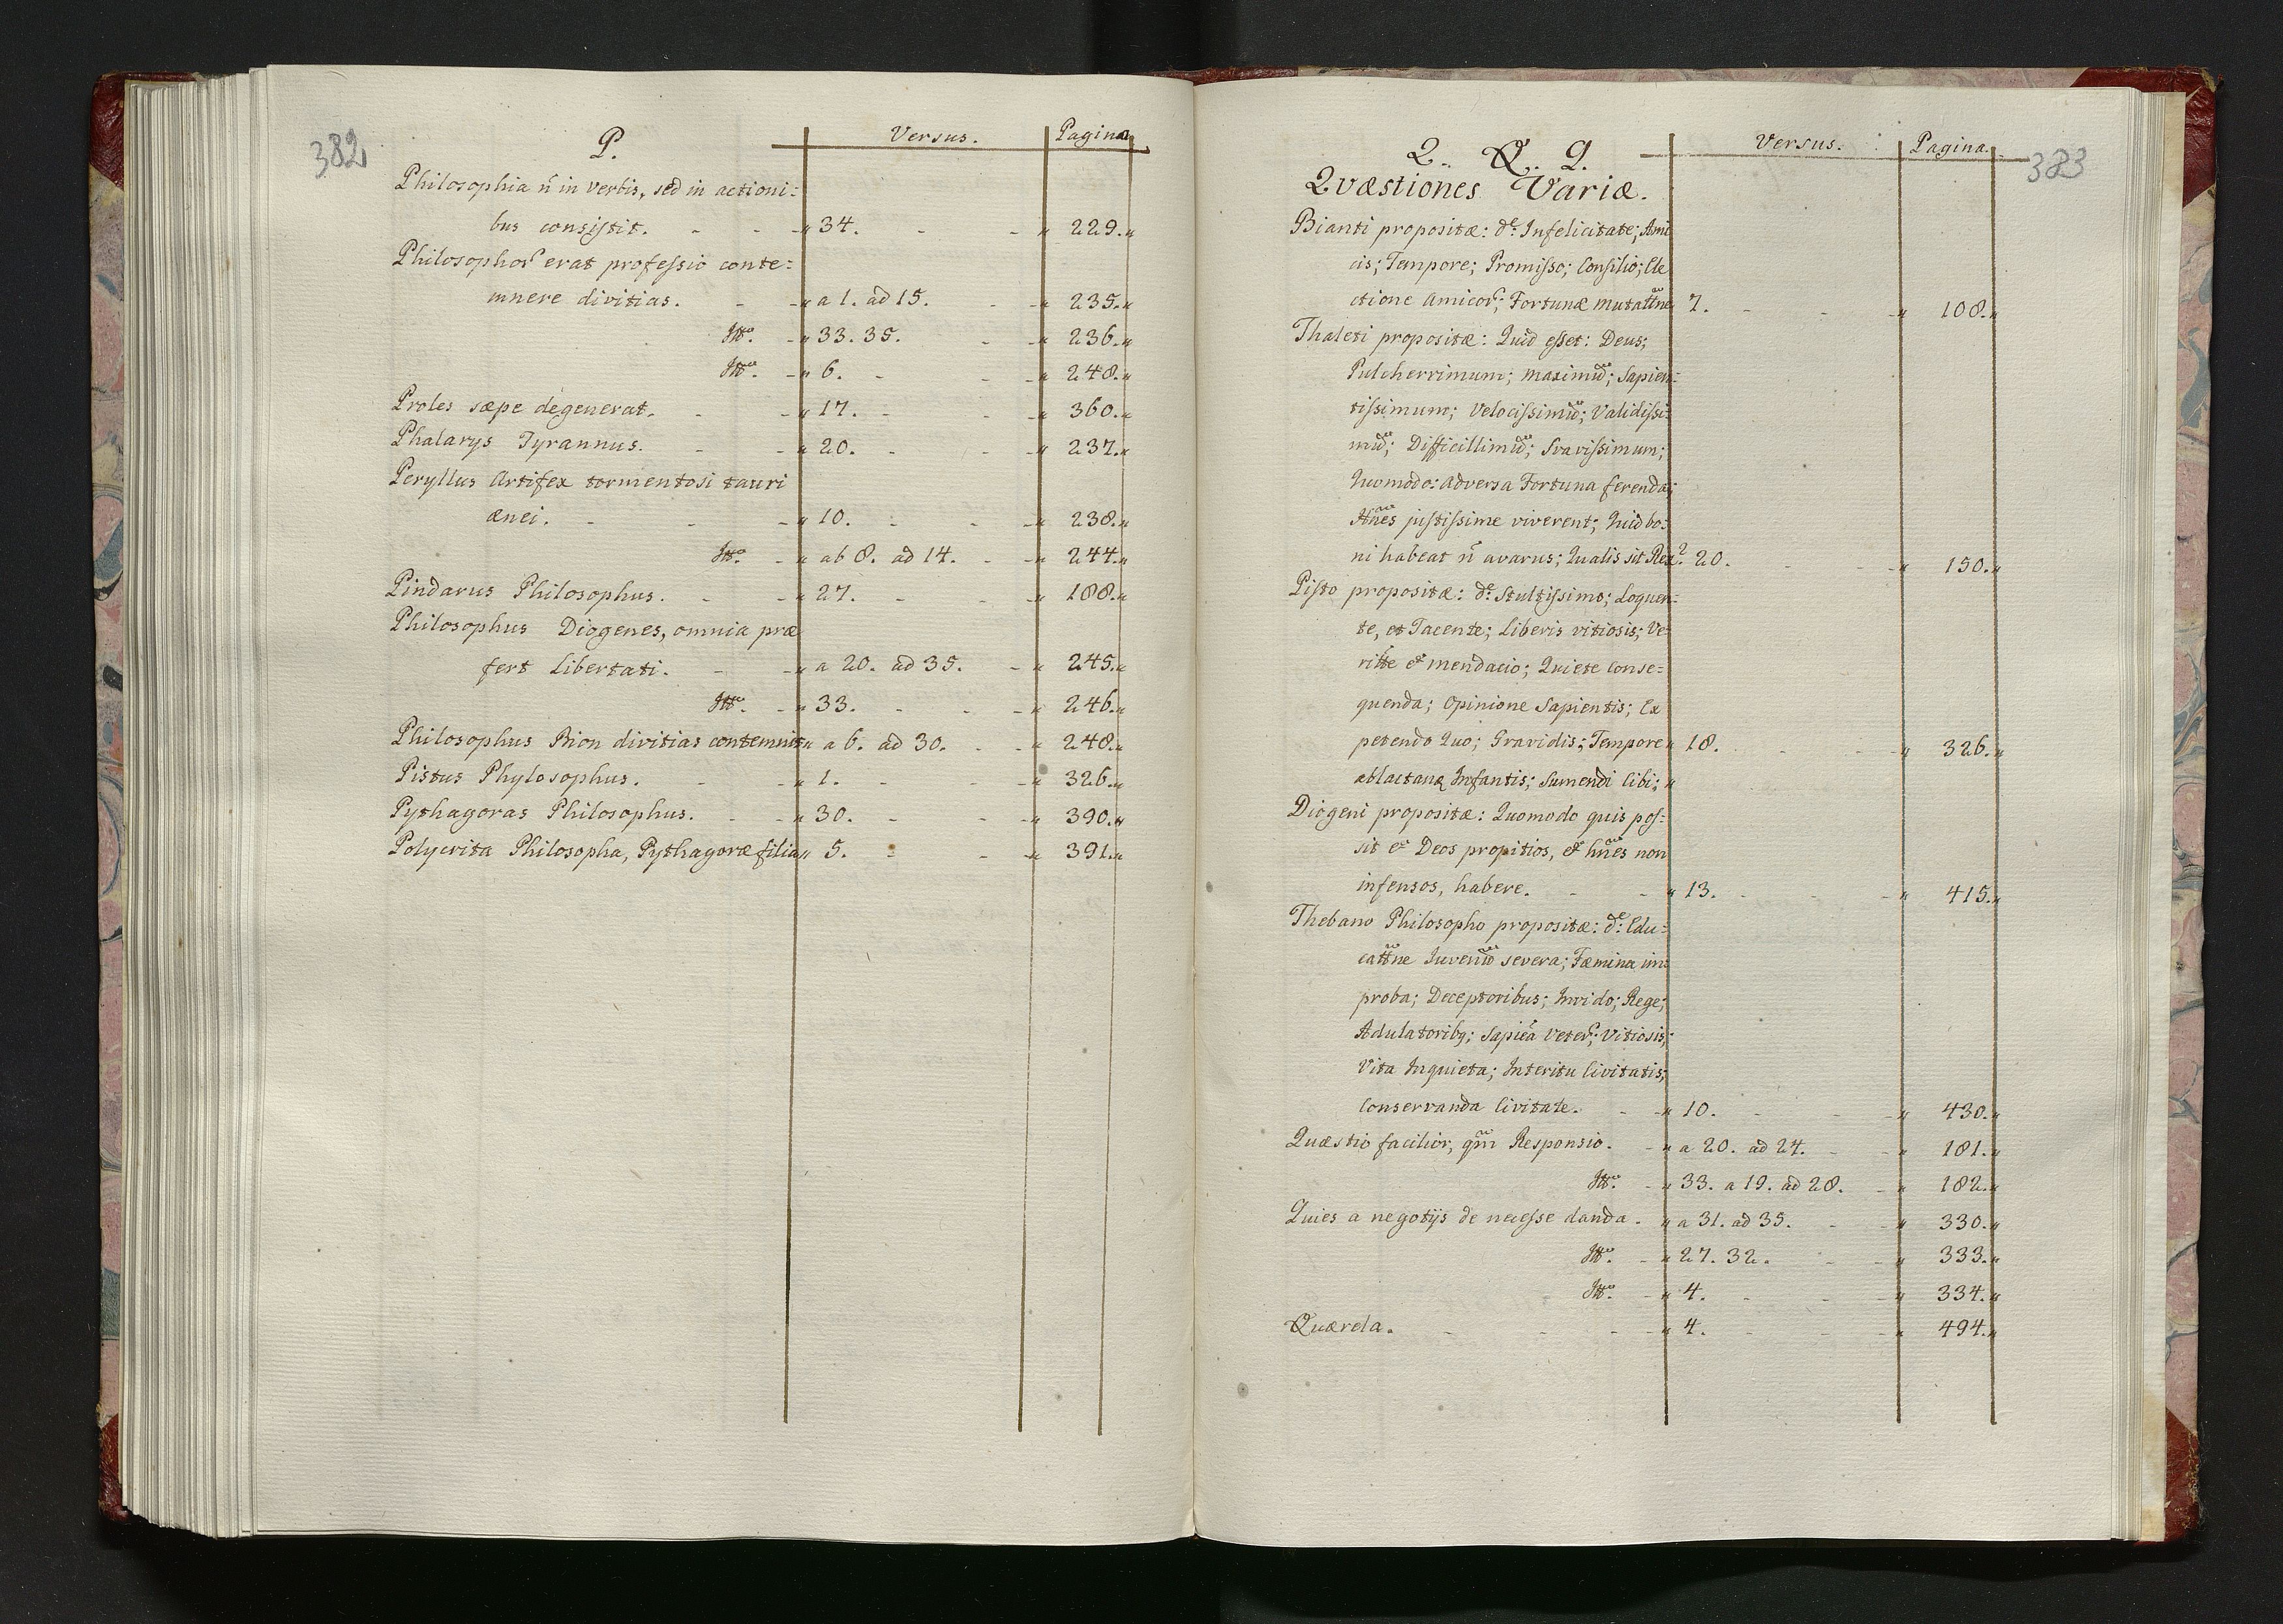 382
P. Versus. Pagina.
Philosophia n̄ in verbis, sed in actioni=
bus consistit. 34. 229.
Philosophor̄ erat professio conte=
mnere divitias. a 1. ad 15. 235.
Itt̄o. 33. 35. 236.
Itt̄o. 6. 248.
Proles sæpe degenerat. 17. 360.
Phalarys Tyrannus. 20. 237.
Peryllus Artifex tormentosi tauri
ænei. 10. 238.
Itt̄o. ab 8. ad 14. 244.
Pindarus Philosophus. 27. 188.
Philosophus Diogenes, omnia præ
fert Libertati. a 20. ad 35. 245.
Itt̄o. 33. 246.
Philosophus Bion divitias contemnit a 6. ad 30. 248.
Pistus Phylosophus. 1. 326.
Pythagoras Philosophus. 30. 390.
Polycrita Philosopha, Pythagoræ filia 5. 391.
383
Q. Q. Q. Versus. Pagina.
Qvæstiones Variæ.
Bianti propositæ: de Infelicitate; Ami
cis; Tempore; Promisso; Consilio; Ele
ctione Amicor̄; Fortunæ mutatt̄ne 7. 108.
Thaleti propositæ: Quid esset: Deus;
Pulcherrimum; maximū; Sapien=
tissimum; Velocissimū; Validissi=
mū; Difficillimū; Svavissimum;
Quomodo: adversa Fortuna ferenda;
Hn̄es justissime viverent; Quid bo=
ni habeat n̄ avarus; Qualis sit Rex? 20. 150.
Pisto propositæ: de Stultissimo; Loquen=
te, et Tacente; Liberis vitiosis; Ve=
ritt̄e et mendacio; Quiete conse=
quenda; Opinione Sapientis; Ex
petendo Quo; Gravidis; Tempore 18. 326.
ablactanđ Infantis; Sumendi Cibi;
Diogeni propositæ: Quomodo quis pos=
sit et Deos propitios, et hn̄es non
infensos, habere. 13. 415.
Thebano Philosopho propositæ: de Edu=
catt̄ne Juvenū severa; Fæmina im=
proba; Deceptoribus; Invido; Rege;
Adulatoribq; Sapiēa Veter̄; Vitiosis;
Vita Inquieta; Interitu Civitatis;
Conservanda Civitate. 10. 430.
Quæstio facilior, qm̄ Responsio. a 20. ad 24. 181.
Itt̄o. 33. a 19. ad 28. 182.
Quies a negotijs de necesse danda. a 31. ad 35. 330.
Itt̄o. 27. 32. 333.
Itt̄o. 4. 334.
Quærela. 4. 494.